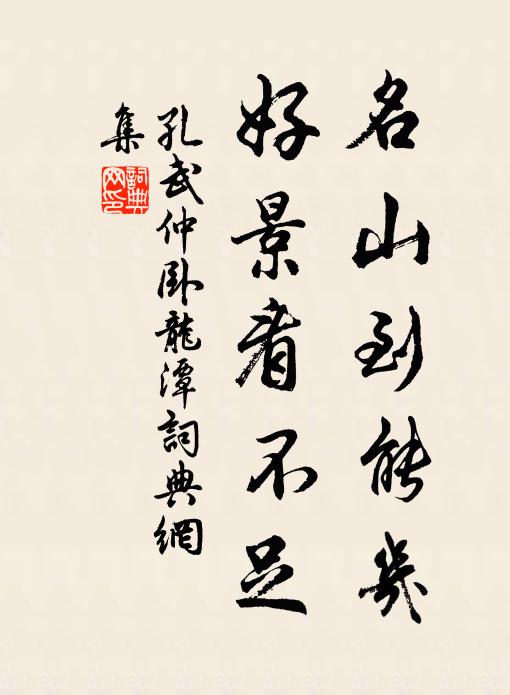 名山到能幾
好景看不足
孔武仲臥龍潭詞典網
集
詞典
网印